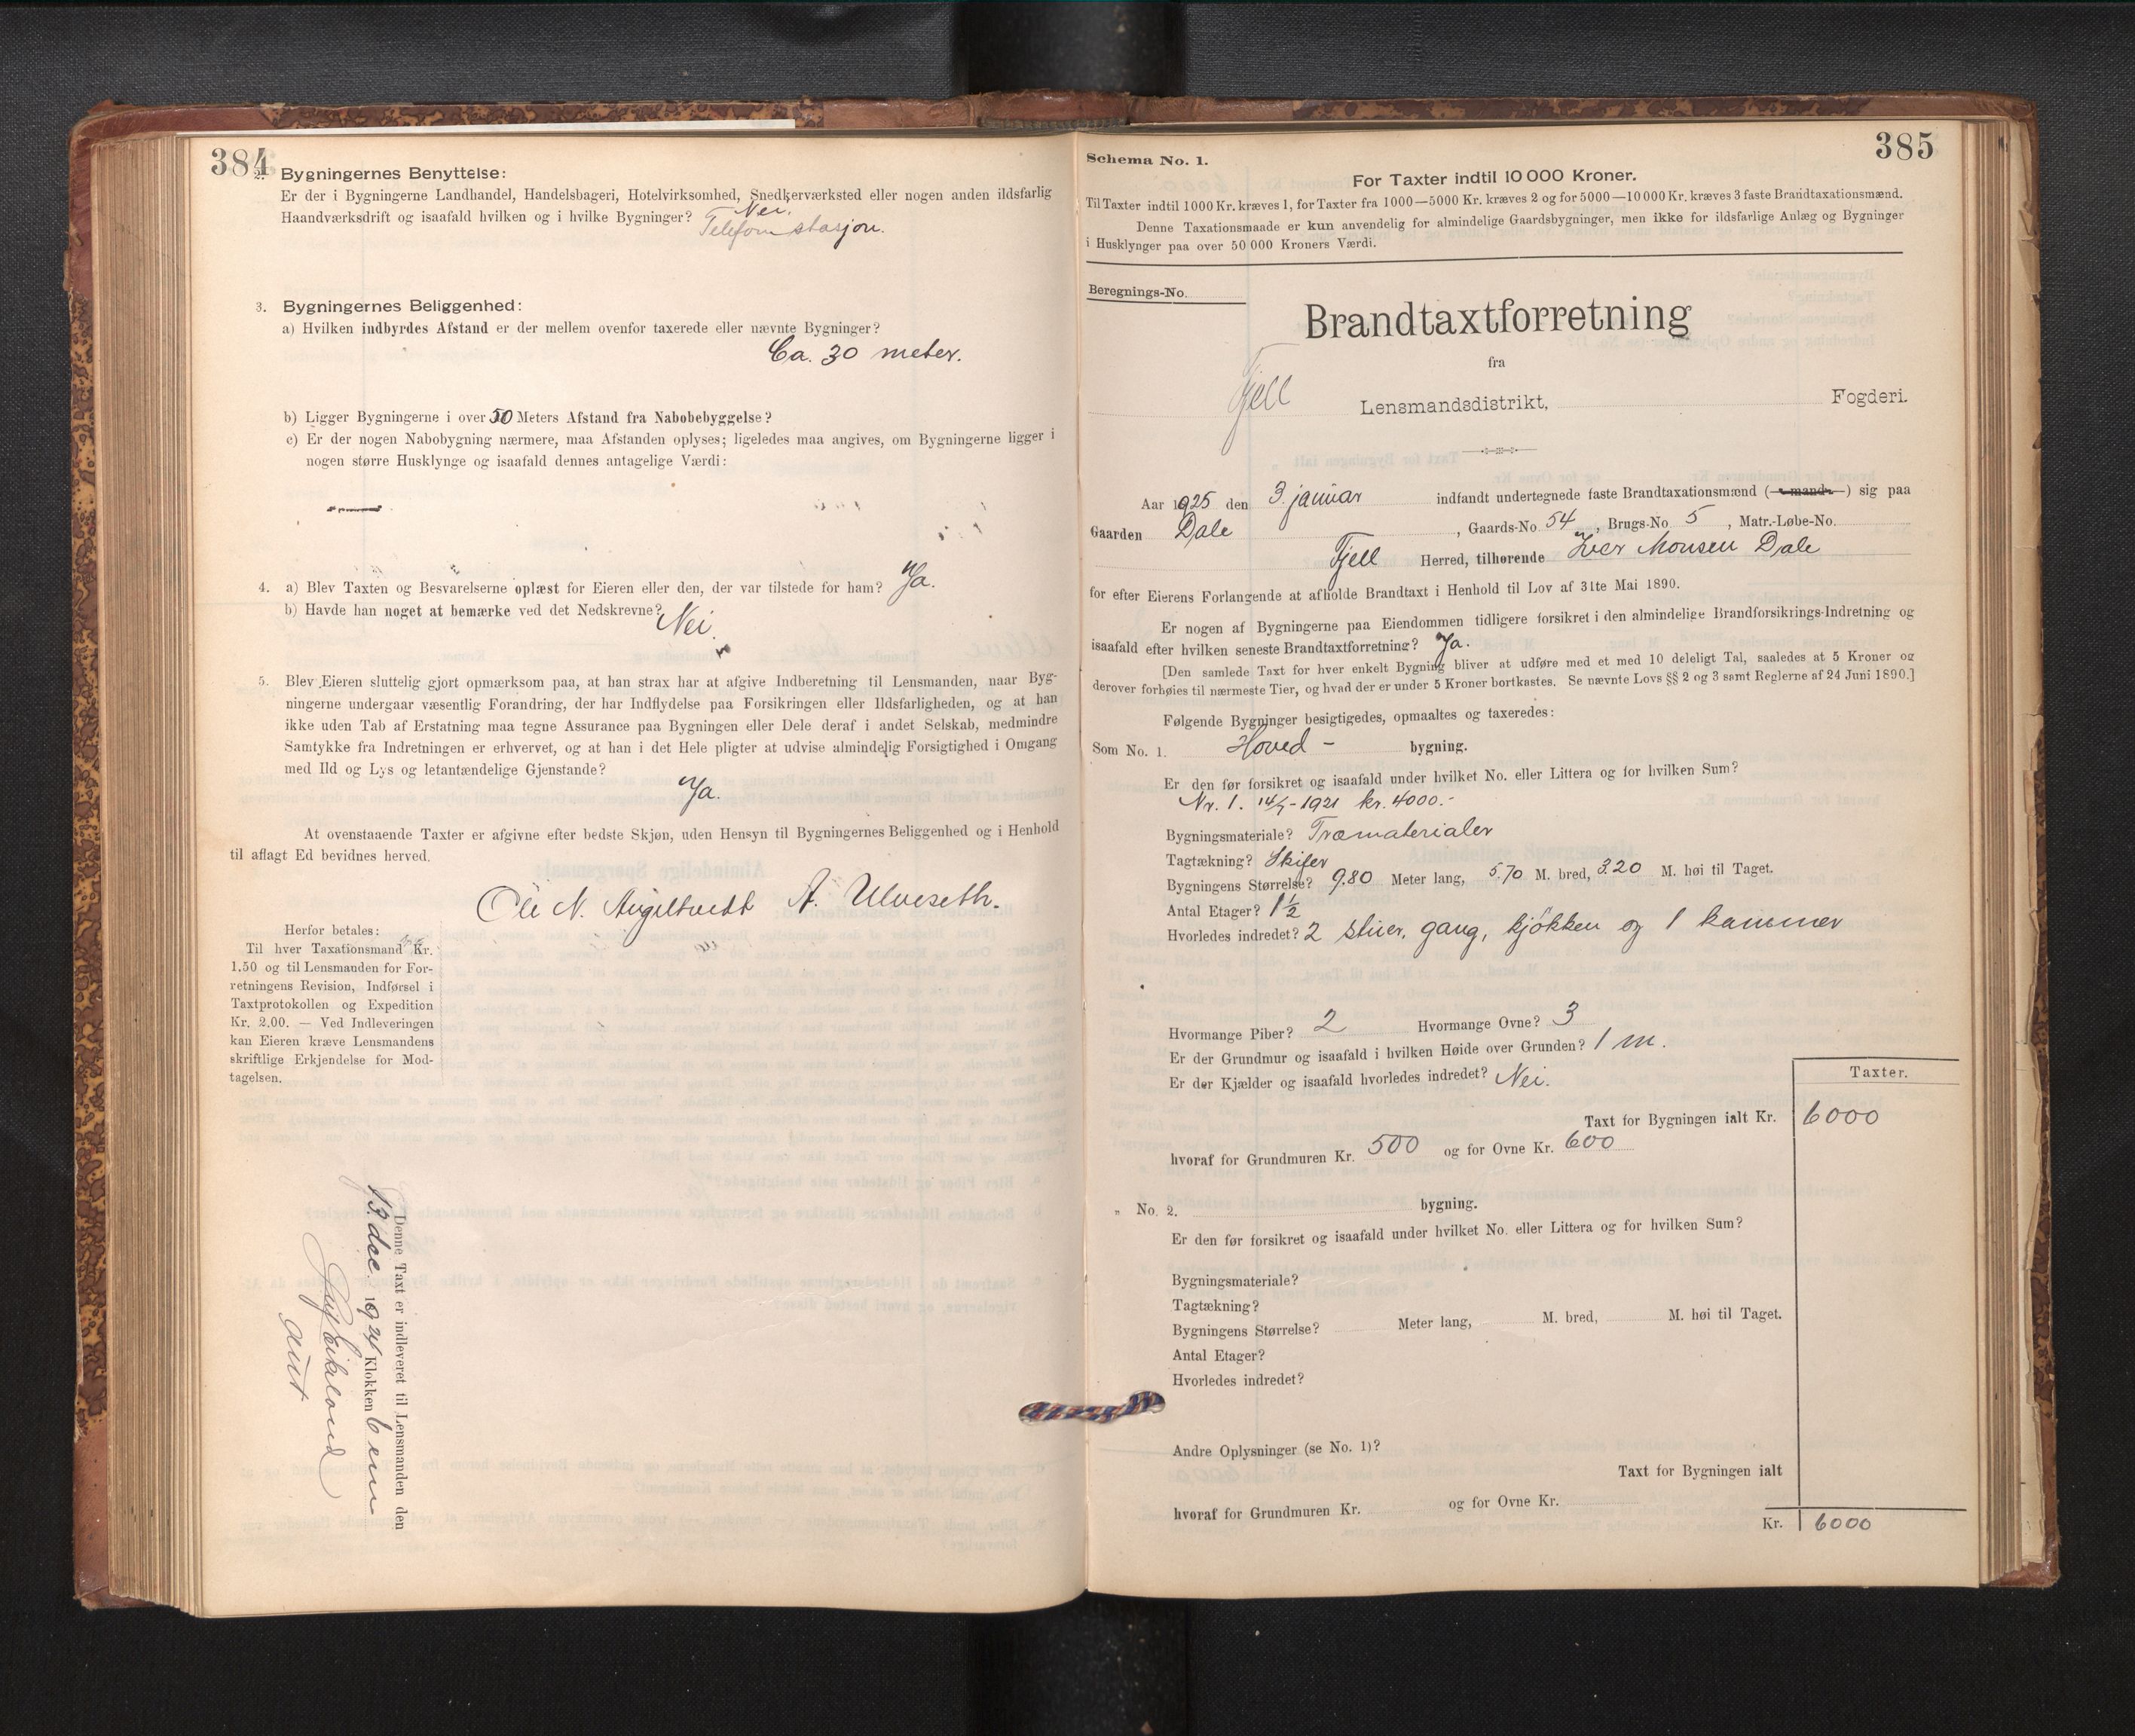 384
2. Bygningernes Benyttelse:
Er der i Bygningerne Landhandel, Handelsbageri, Hotelvirksomhed, Snedkerværksted eller nogen anden ildsfarlig
Haandværksdrift og isaafald hvilken og i hvilke Bygninger? Nei.
Telefonstasjon.
3. Bygningernes Beliggenhed:
a) Hvilken indbyrdes Afstand er der mellem ovenfor taxerede eller nævnte Bygninger?
Ca. 30 meter.
b) Ligger Bygningerne i over 50 Meters Afstand fra Nabobebyggelse?
c) Er der nogen Nabobygning nærmere, maa Afstanden oplyses; ligeledes maa angives, om Bygningerne ligger i
nogen større Husklynge og isaafald dennes antagelige Værdi:
4. a) Blev Taxten og Besvarelserne oplæst for Eieren eller den, der var tilstede for ham? Ja.
b) Havde han noget at bemærke ved det Nedskrevne? Nei.
5. Blev Eieren sluttelig gjort opmærksom paa, at han strax har at afgive Indberetning til Lensmanden, naar Byg-
ningerne undergaar væsentlig Forandring, der har Indflydelse paa Forsikringen eller Ildsfarligheden, og at han
ikke uden Tab af Erstatning maa tegne Assurance paa Bygningen eller Dele deraf i andet Selskab, medmindre
Samtykke fra Indretningen er erhvervet, og at han i det Hele pligter at udvise almindelig Forsigtighed i Omgang
med Ild og Lys og letantændelige Gjenstande?
Ja.
At ovenstaaende Taxter er afgivne efter bedste Skjøn, uden Hensyn til Bygningernes Beliggenhed og i Henhold
til aflagt Ed bevidnes herved.
Ole N. Angeltveit A. Ulveseth.
Herfor betales:
Til hver Taxationsmand Kr.
1.50 og til Lensmanden for For-
retningens Revision, Indførsel i
Taxtprotokollen og Expedition
Kr. 2.00. — Ved Indleveringen
kan Eieren kræve Lensmandens
skriftlige Erkjendelse for Mod-
tagelsen.
Denne Taxt er indleveret til Lensmanden den
13. dec. 1924 Klokken 6 em
385
Schema No. 1.
For Taxter indtil 10 000 Kroner.
Til Taxter indtil 1000 Kr. kræves 1, for Taxter fra 1000—5000 Kr. kræves 2 og for 5000—10 000 Kr. kræves 3 faste Brandtaxationsmænd.
Denne Taxationsmaade er kun anvendelig for almindelige Gaardsbygninger, men ikke for ildsfarlige Anlæg og Bygninger
i Husklynger paa over 50 000 Kroners Værdi.
Beregnings-No.
Brandtaxtforretning
fra
Fjell Lensmandsdistrikt, Fogderi.
Aar 1925 den 3. januar indfandt undertegnede faste Brandtaxationsmænd (—mand—) sig paa
Gaarden Dale, Gaards-No. 54, Brugs-No. 5, Matr.-Løbe-No.
Fjell Herred, tilhørende Iver Monsen Dale
for efter Eierens Forlangende at afholde Brandtaxt i Henhold til Lov af 31te Mai 1890.
Er nogen af Bygningerne paa Eiendommen tidligere forsikret i den almindelige Brandforsikrings-Indretning og
isaafald efter hvilken seneste Brandtaxtforretning? Ja.
[Den samlede Taxt for hver enkelt Bygning bliver at udføre med et med 10 deleligt Tal, saaledes at 5 Kroner og
derover forhøies til nærmeste Tier, og hvad der er under 5 Kroner bortkastes. Se nævnte Lovs §§ 2 og 3 samt Reglerne af 24 Juni 1890.]
Følgende Bygninger besigtigedes, opmaaltes og taxeredes:
Som No. 1. Hoved- bygning.
Er den før forsikret og isaafald under hvilket No. eller Littera og for hvilken Sum?
Nr. 1. 14/7-1921 kr. 4000.-
Bygningsmateriale? Træmaterialer
Tagtækning? Skifer
Bygningens Størrelse? 9.80 Meter lang, 5.70 M. bred, 3.20 M. høi til Taget.
Antal Etager? 1½
Hvorledes indredet? 2 stuer, gang, kjøkken og 1 kammer
Hvormange Piber? 2 Hvormange Ovne? 3
Er der Grundmur og isaafald i hvilken Høide over Grunden? 1 m.
Er der Kjælder og isaafald hvorledes indredet? Nei.
Taxter.
Taxt for Bygningen ialt Kr. 6000
hvoraf for Grundmuren Kr. 500 og for Ovne Kr. 600
„ No. 2. bygning.
Er den før forsikret og isaafald under hvilket No. eller Littera og for hvilken Sum?
Bygningsmateriale?
Tagtækning?
Bygningens Størrelse? Meter lang, M. bred, M. høi til Taget.
Antal Etager?
Hvorledes indredet?
Andre Oplysninger (se No. 1)?
Taxt for Bygningen ialt
hvoraf for Grundmuren Kr. og for Ovne Kr.
Kr. 6000